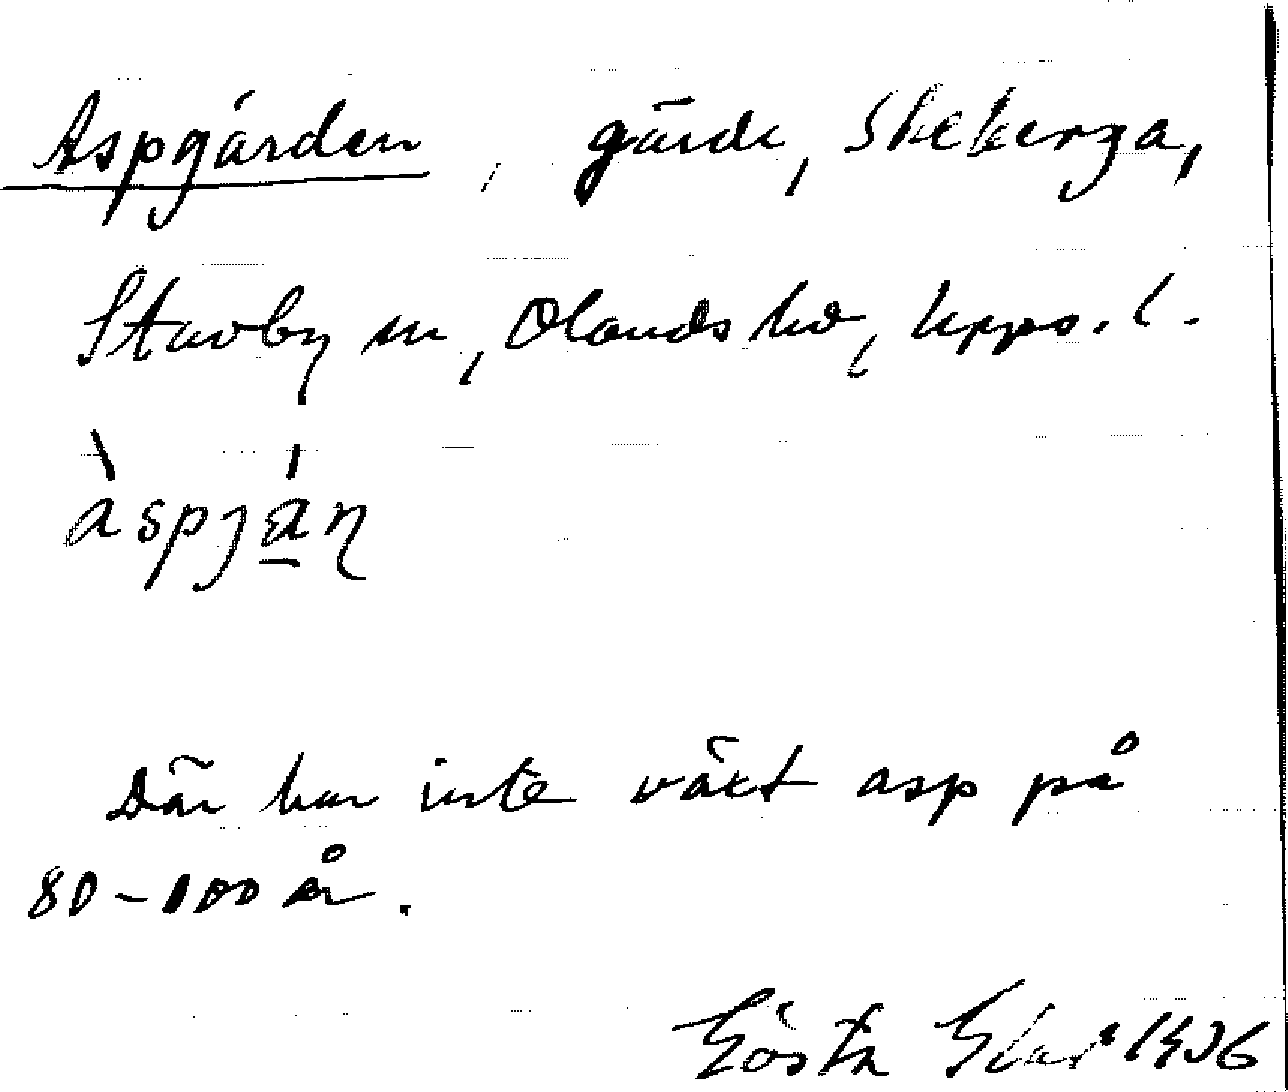 Aspgärden, gärde, Skeberga,
Stavby sn, Olands hd, Upps. l.
àspjá̱ɳ
Där har inte växt asp på
80-100 år.
Gösta 1936